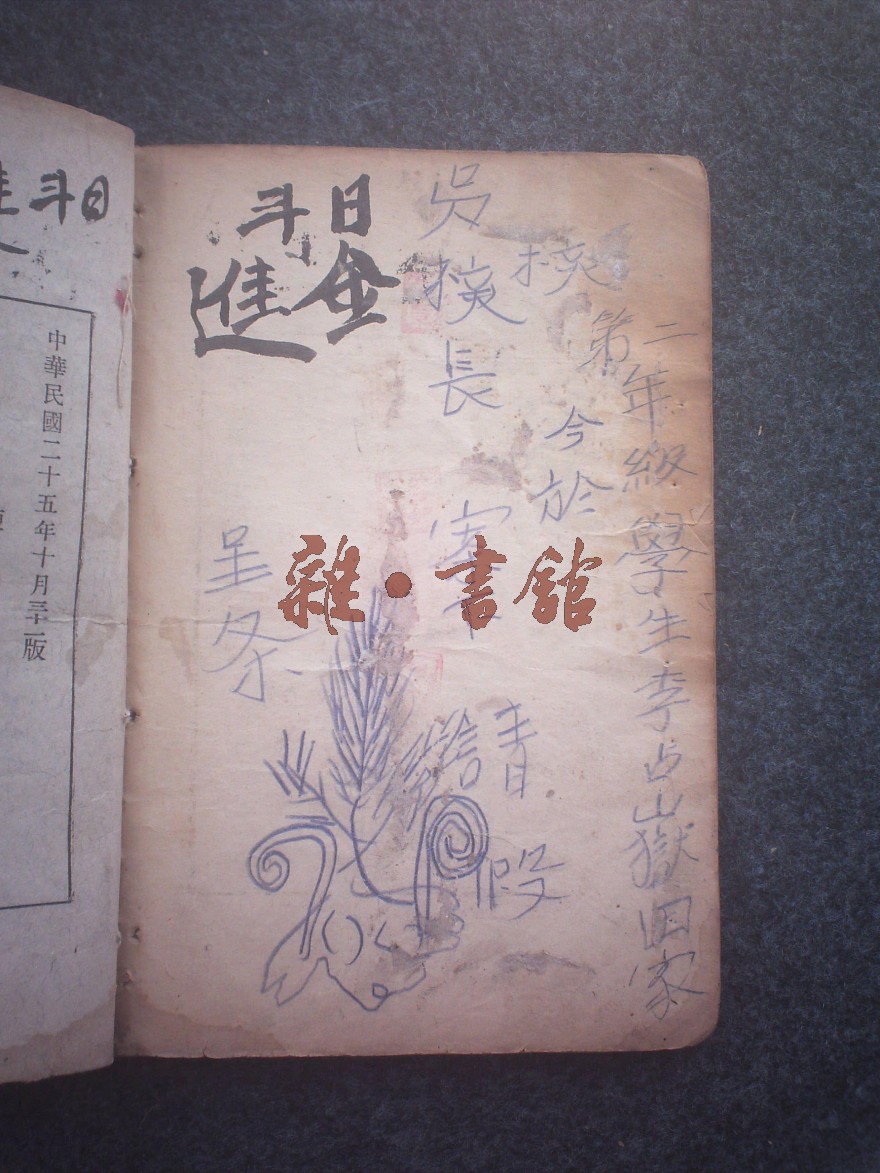 二年級學生李占山獄回家
第
校
今於
吳校長
請假
日進斗金
呈条
雜·書館
日斗進
中華民國二十五年十月三十二版